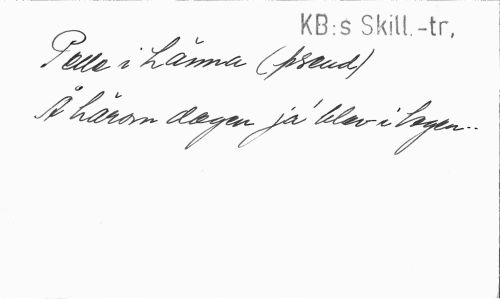 KB:s Skill.-tr,
Pelle i Länna (pseud)
Å härom dagen ja' blev i hagen..